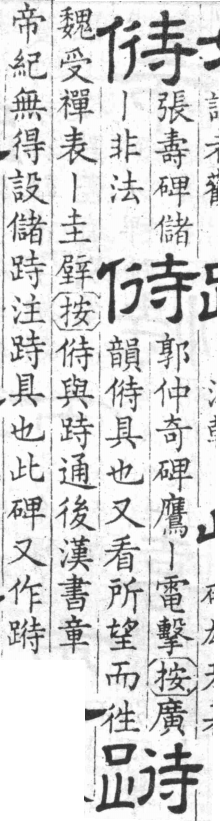 偫
張壽碑儲
丨非法
偫
郭仲奇碑鷹丨電擊按廣
韻偫具也又看所望而往
魏受禪表丨圭璧按偫與跱通後漢書章
帝紀無得設儲跱注跱具也此碑又作